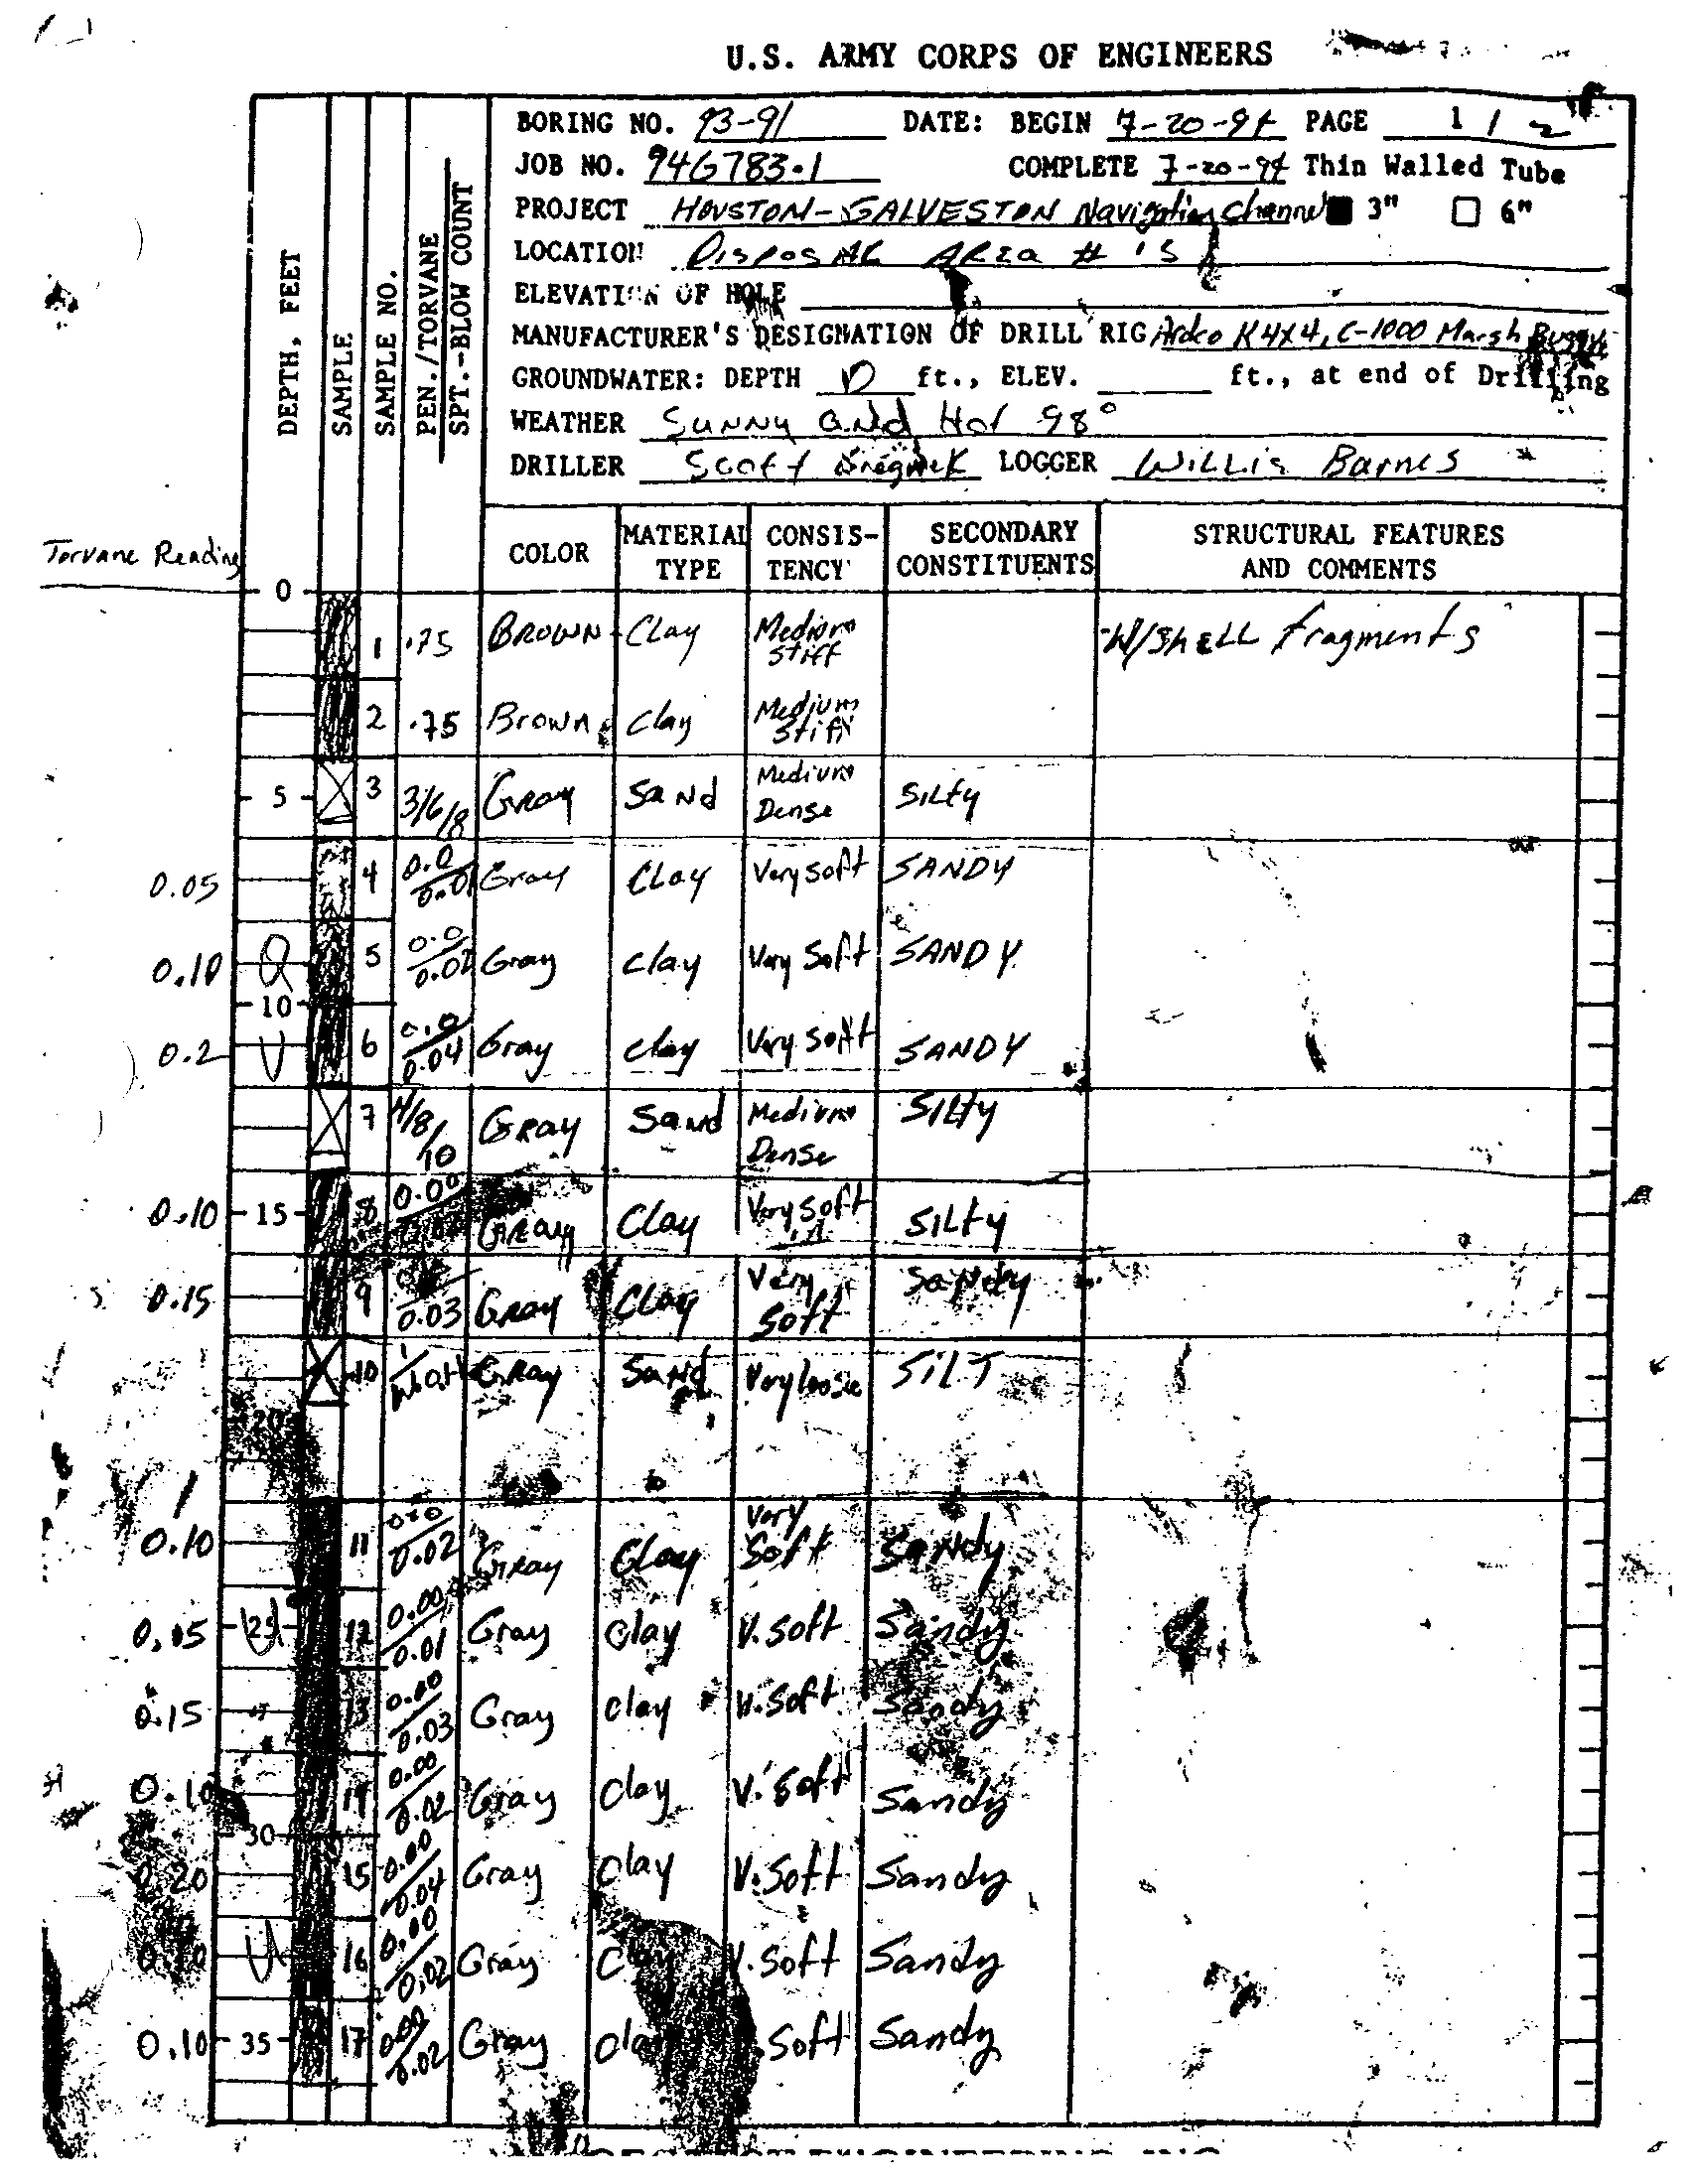 U.S. ARMY CORPS OF ENGINEERS
BORING NO. 93-91 DATE: BEGIN 7-20-94 PAGE 1 / 2
JOB NO. 94G783.1 COMPLETE 7-20-94 Thin Walled Tube
PROJECT HOUSTON-GALVESTON Navigation Channel 3" 6"
LOCATION DISPOSAL AREA # 15
ELEVATION OF HOLE
MANUFACTURER'S DESIGNATION OF DRILL RIG Ardco K 4X4, C-1000 Marsh Buggy
GROUNDWATER: DEPTH 0 ft., ELEV. ft., at end of Drilling
WEATHER Sunny and Hot 98°
DRILLER Scott LOGGER Willis Barnes
DEPTH, FEET
SAMPLE
SAMPLE NO.
PEN./TORVANE
SPT.-BLOW COUNT
COLOR MATERIAL TYPE CONSIS-TENCY SECONDARY CONSTITUENTS STRUCTURAL FEATURES AND COMMENTS
Torvane Reading
0
1 .75 BROWN Clay Medium Stiff W/Shell fragments
2 .75 Brown Clay Medium Stiff
5 3 3/6/8 Gray Sand Medium Dense Silty
0.05 4 0.0/0.01 Gray Clay Very Soft SANDY
0.10 5 0.0/0.02 Gray Clay Very Soft SANDY
10
0.2 U 6 0.0/0.04 Gray Clay Very Soft SANDY
7 4/8/10 Gray Sand Medium Dense Silty
0.10 15 8 0.00 Gray Clay Very Soft Silty
0.15 9 0.03 Gray Clay Very Soft Sandy
10 Gray Sand Very loose SILT
20
0.10 11 0.0/0.02 Gray Clay Very Soft Sandy
0.05 25 12 0.00/0.01 Gray Clay V. Soft Sandy
0.15 13 0.00/0.03 Gray Clay V. Soft Sandy
0.10 14 0.00/0.02 Gray Clay V. Soft Sandy
30
0.20 15 0.00/0.04 Gray Clay V. Soft Sandy
0.10 U 16 0.00/0.02 Gray Clay V. Soft Sandy
0.10 35 17 0.00/0.02 Gray Clay V. Soft Sandy